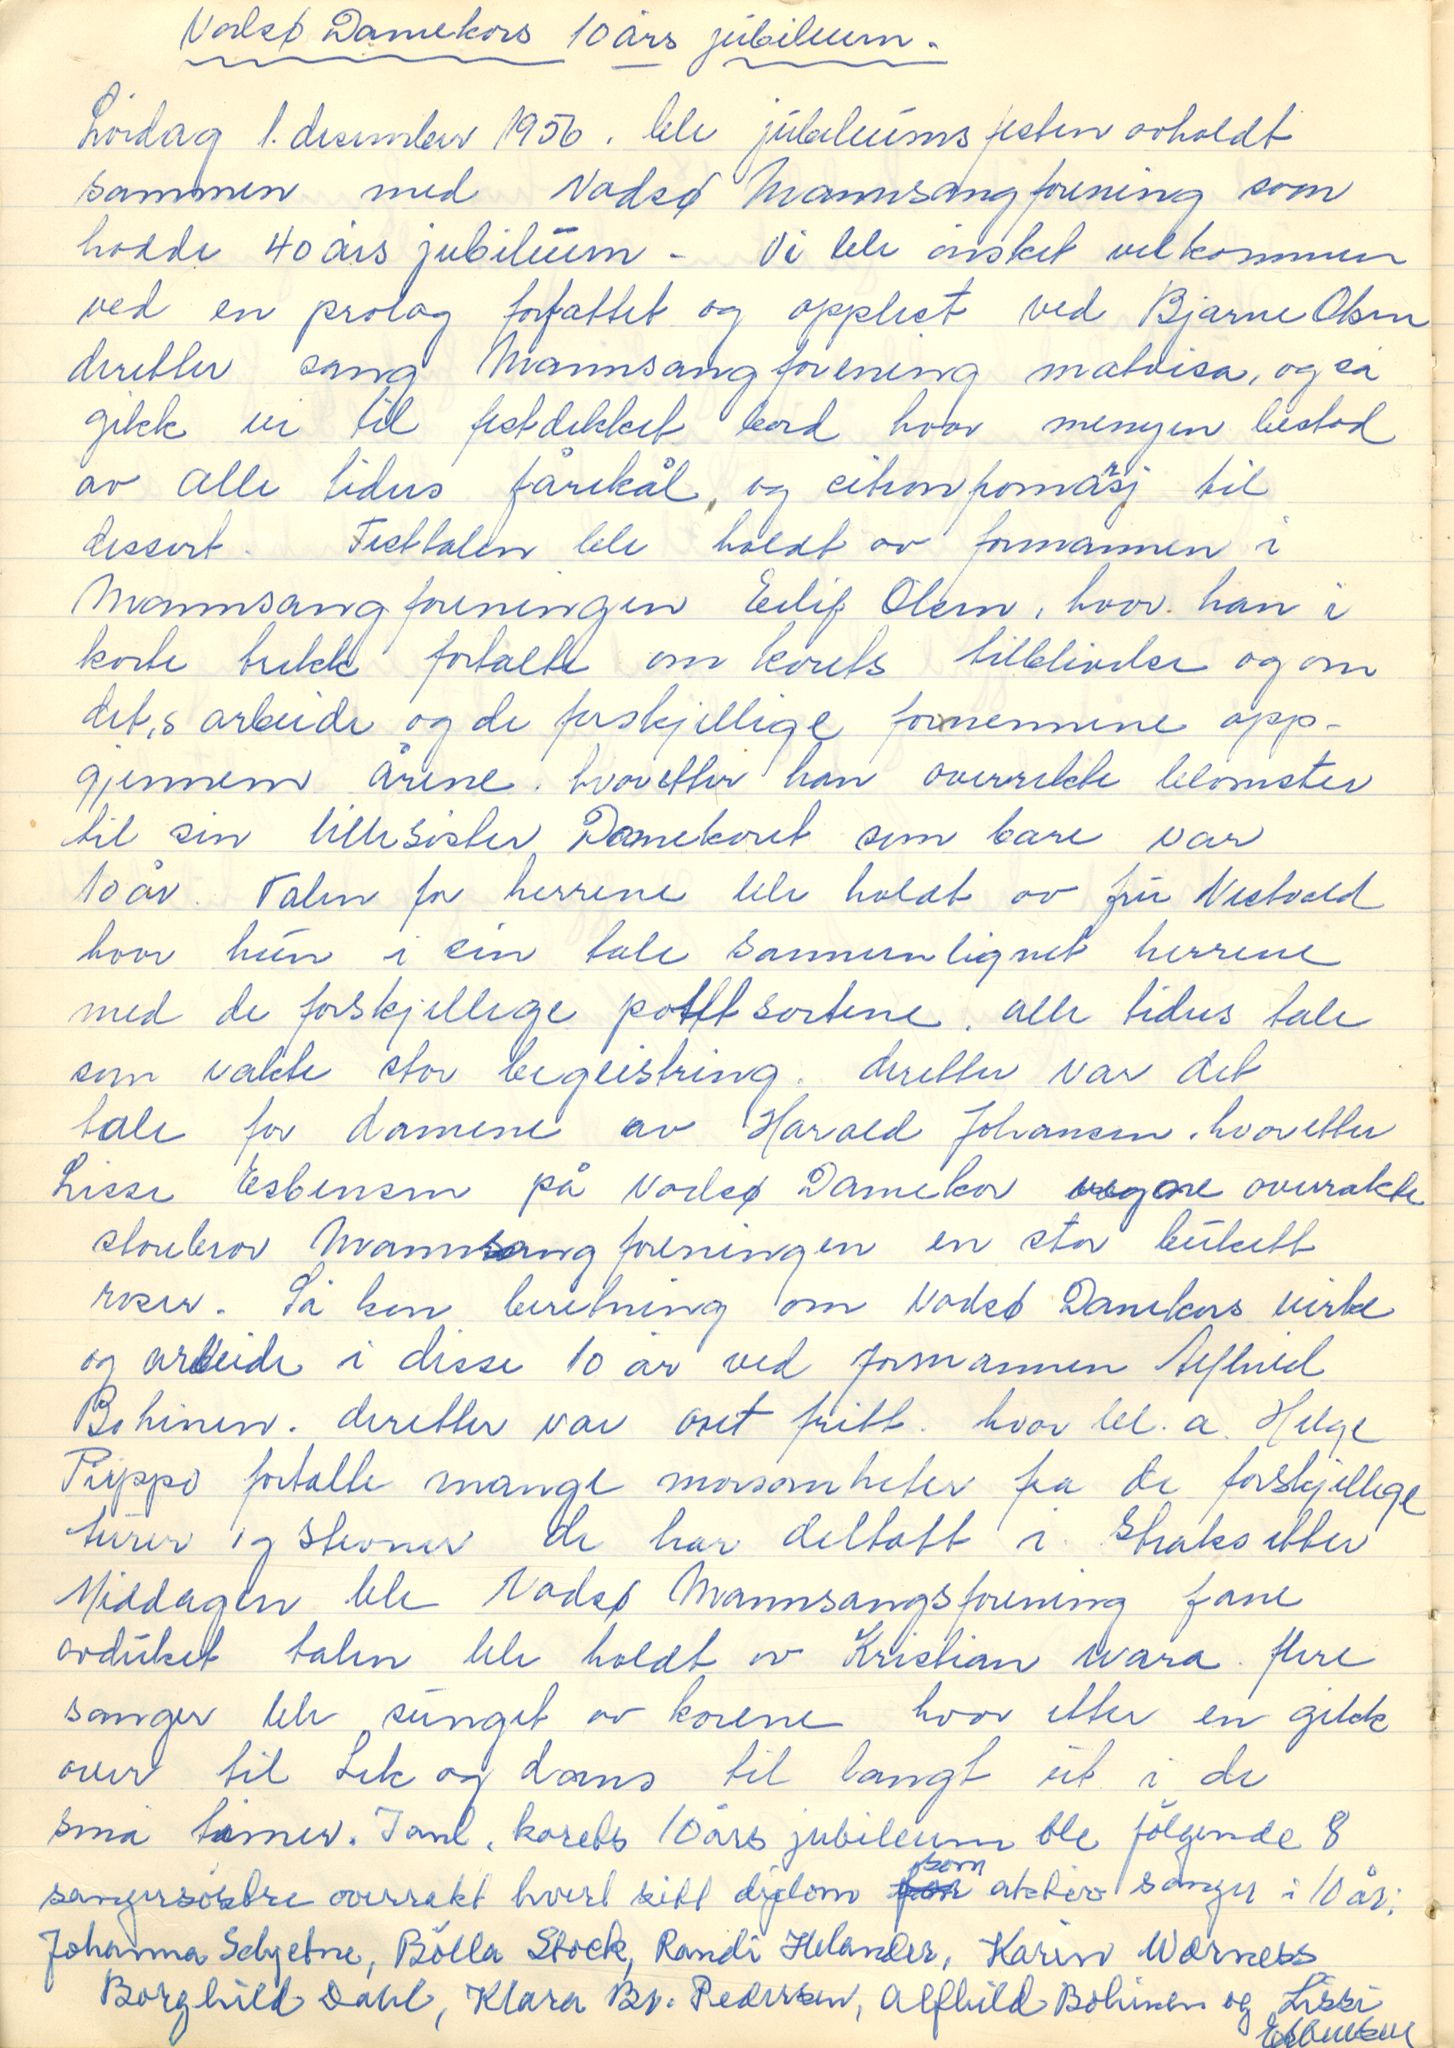 Vadsø Damekors 10 års jubileum.
Lördag 1. desember 1956. ble jubileumsfesten avholdt
sammen med Vadsø Mannsangforening som
hadde 40 års jubileum - Vi ble önsket velkommen
ved en prolog forfattet og opplest ved Bjarne Olsen
deretter sang Mannsangforening matvisa, og så
gikk vi til festdekket bord hvor menyen bestod
av alle tiders fårekål, og citronfromasj til
dessert. Festtalen ble holdt av formannen i
Mannsangforeningen Eilif Olsen, hvor han i
korte trekk fortalte om korets tilblivelse og om
det,s arbeide og de forskjellige formennene opp-
gjennem årene. hvoretter han overrekte blomster
til sin lillesöster Damekoret som bare var
10 år. Talen for herrene ble holdt av fru Nestvold
hvor hun i sin tale sammenlignet herrene
med de forskjellige potetsortene. alle tiders tale
som vakte stor begeistring. deretter var det
tale for damene av Harald Johansen. hvoretter
Lissi Esbensen på Vadsø Damekor vegne overrakte
storebror Mannsangforeningen en stor bukett
roser. Så kom beretning om Vadsø Damekors virke
og arbeide i disse 10 år ved formannen Alfhild
Bohinen. deretter var ordet fritt. hvor bl. a. Helge
Pirppo fortalte mange morsomheter fra de forskjellige
turer og stevner de har deltatt i. Straks etter
Middagen ble Vadsø Mannsangsforening fane
avduket talen ble holdt av Kristian Wara. flere
sanger ble sunget av korene hvor etter en gikk
over til Lek og dans til langt ut i de
små timer. I anl. korets 10 års jubileum ble fölgende 8
sangersöstre overrakt hvert sitt diplom som aktiv sanger i 10 år:
Johanna Schjetne, Bölla Stock, Randi Helander, Karin Wærness
Borghild Dahl, Klara Br. Pedersen, Alfhild Bohinen og Lissi
Esbensen